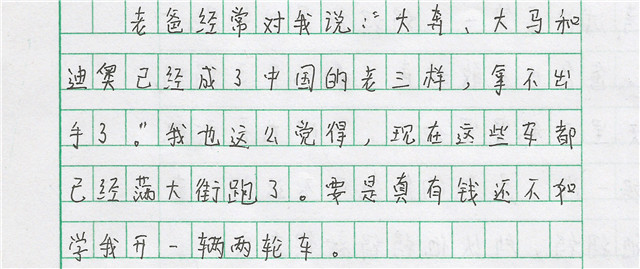 老爸经常对我说:“大奔、大马和
迪奥已经成了中国的老三样,拿不出
手了。”我也这么觉得,现在这些车都
已经满大街跑了。要是真有钱还不如
学我开一辆两轮车。